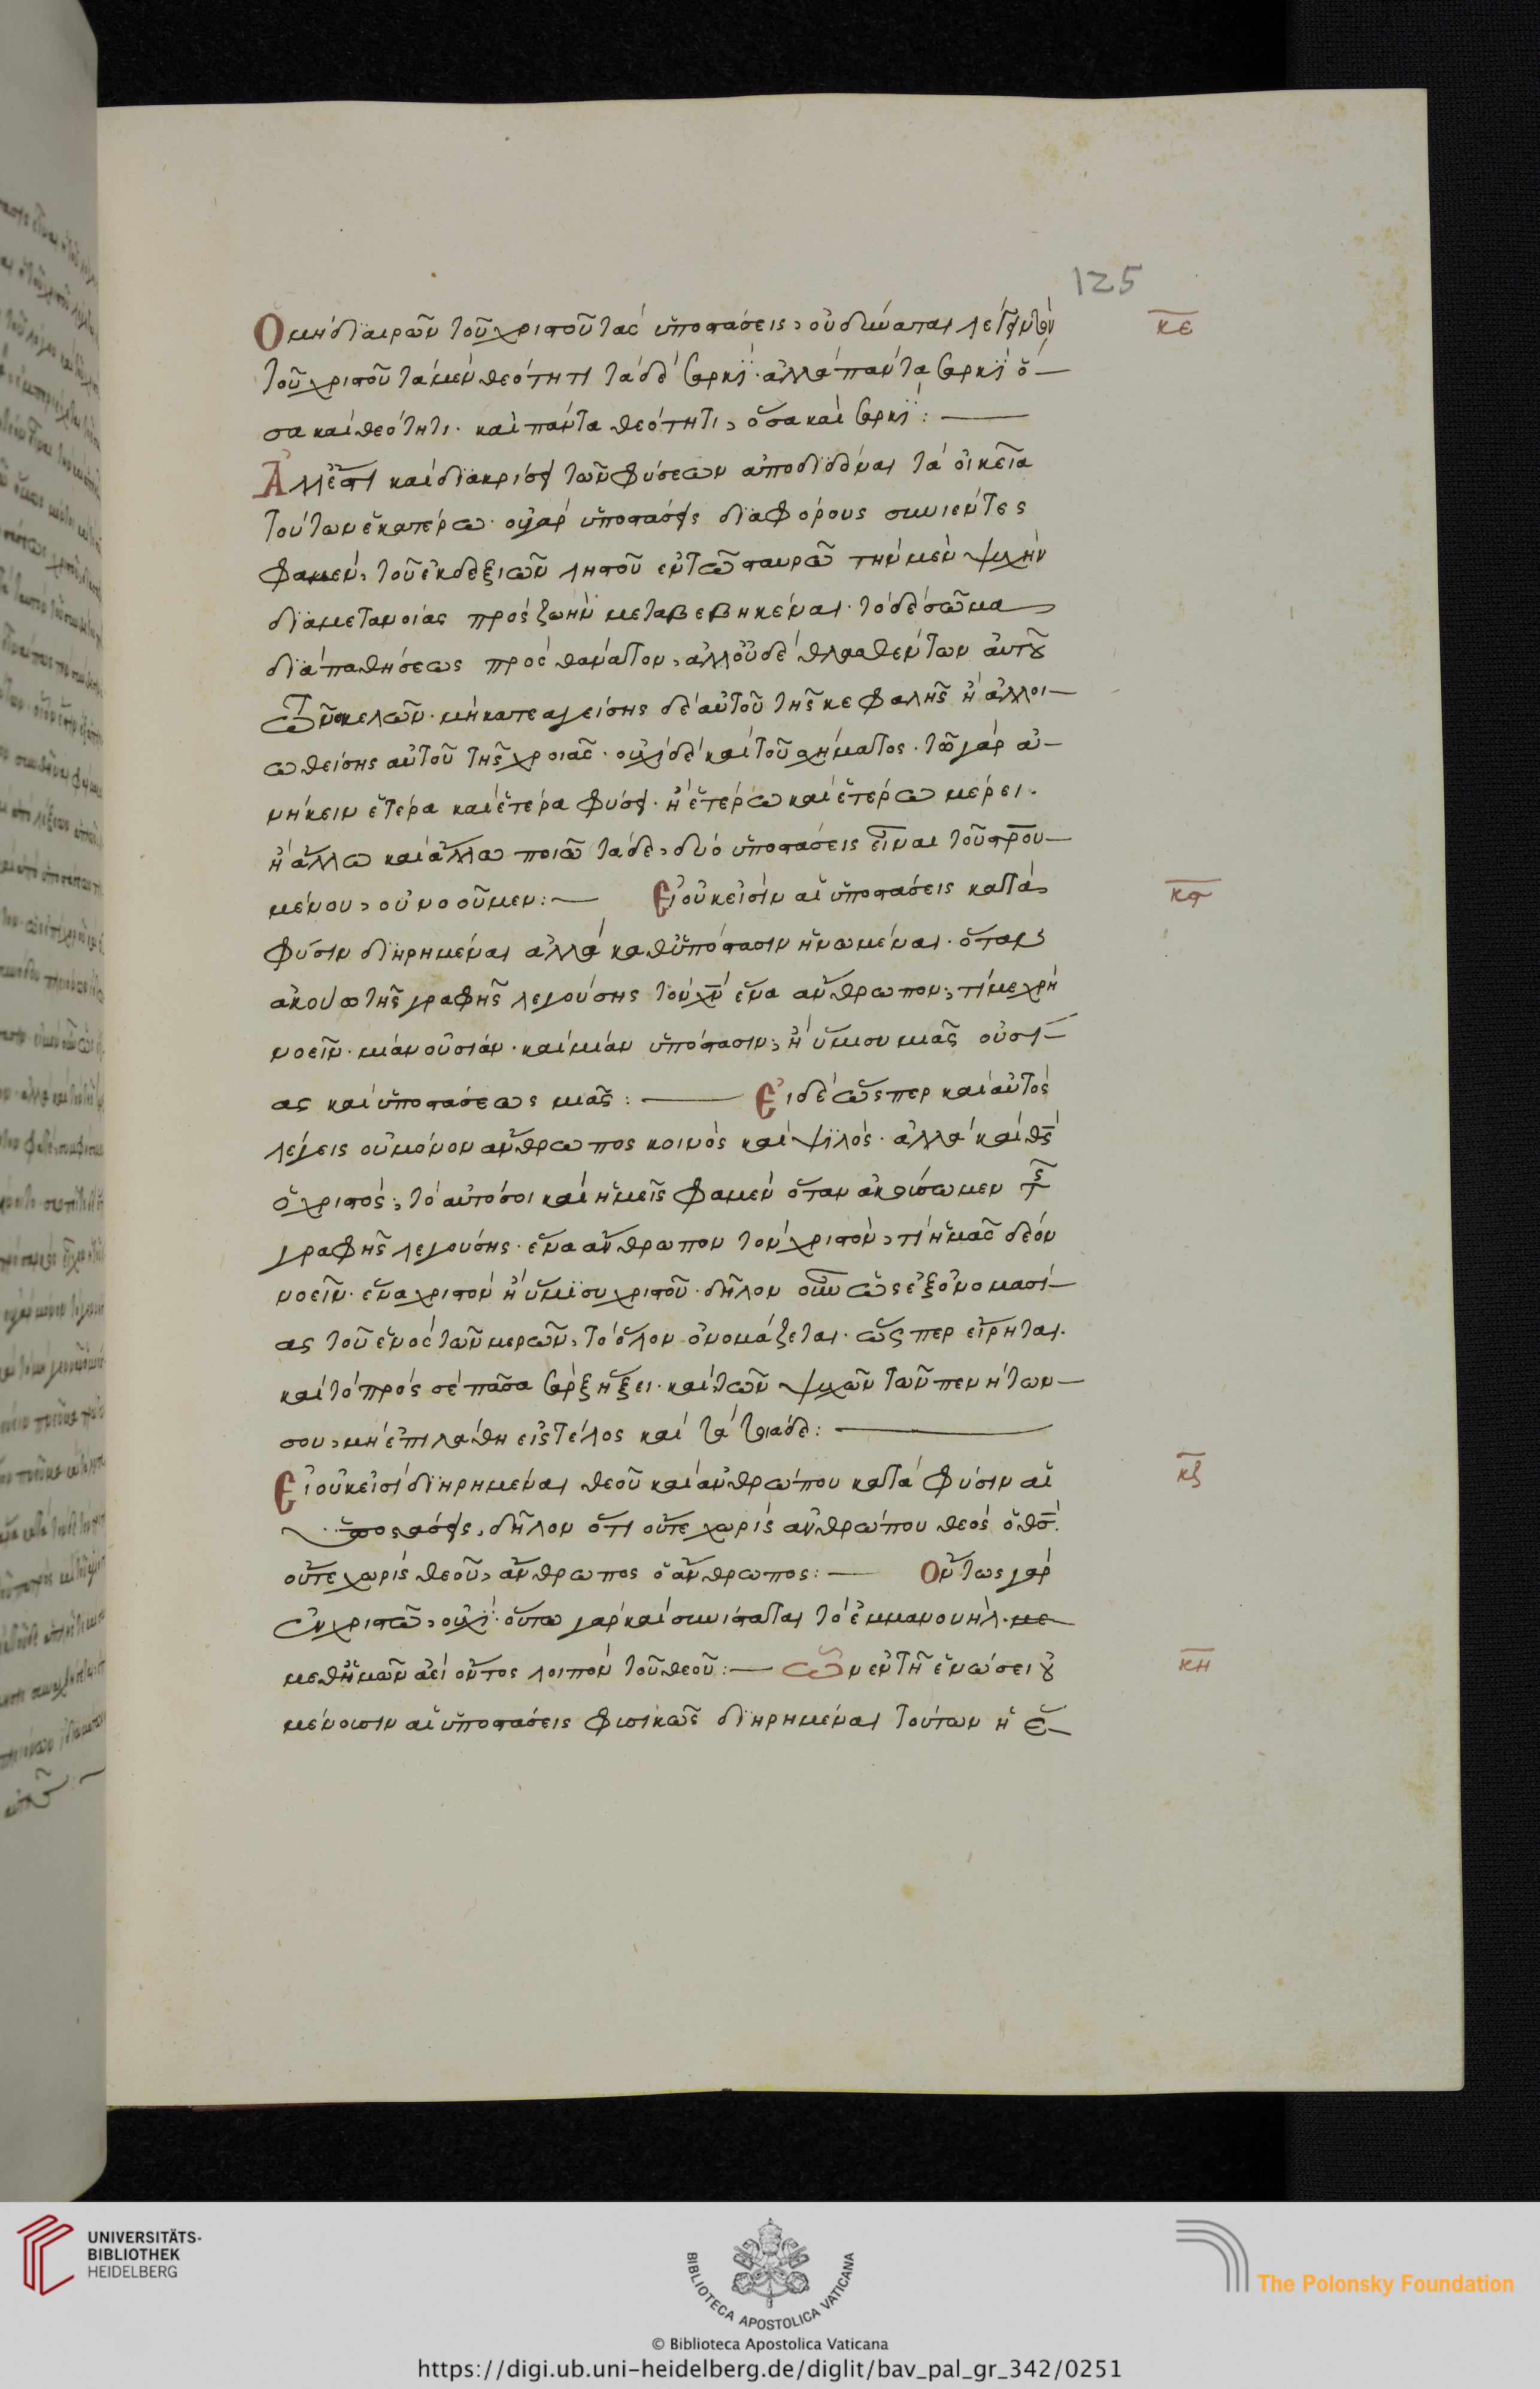 125
Ὁ μὴ διαιρῶν τοῦ χριστοῦ τὰς ὑποστάσεις, οὐ δύναται λέγειν τὸν κε
τοῦ χριστοῦ τὰ μὲν θεότητι τὰ δὲ σαρκΐ· ἀλλὰ πάντα σαρκΐ ὅ-
σα καὶ θεότητι· καὶ πάντα θεότητι, ὅσα καὶ σαρκΐ:
Ἀλλέστι καὶ διακρίσει τῶν φύσεων ἀποδιδόναι τὰ οἰκεῖα
τούτων ἑκατέρω· οὐ γὰρ ὑποστάσεις διαφόρους συνιέντες
φαμὲν, τοῦ ἐκ δεξιῶν ληστοῦ ἐν τῶ σταυρῶ τὴν μὲν ψυχὴν
διαμετανοίας πρὸς ζωὴν μεταβεβηκέναι· τὸ δὲ σῶμα
διὰ παθήσεως πρὸς θάνατον, ἀλλοὐδὲ θλασθέντων αὐτοῦ
τῶν σκελῶν· μὴ κατεαγείσης δὲ αὐτοῦ τῆς κεφαλῆς ἢ ἀλλοι-
ωθείσης αὐτοῦ τῆς χροιᾶς· οὐχὶ δὲ καὶ τοῦ σχήματος· τῶ γὰρ ἀ-
νήκειν ἑτέρα καὶ ἑτέρα φύσει· ἢ ἑτέρω καὶ ἑτέρω μέρει·
ἢ ἄλλω καὶ ἄλλω ποιῶ τάδε, δυό ὑποστάσεις εἶναι τοῦ στρου-
μένου, οὐ νοοῦμεν: Εἰ οὐκ εἰσὶν αἱ ὑποστάσεις κατὰ κστ
φύσιν διηρημέναι ἀλλὰ καθϋπόστασιν ἡνωμέναι· ὅταν
ἀκούσω τῆς γραφῆς λεγούσης τὸν χν ἕνα ἄνθρωπον, τί με χρὴ
νοεῖν· μίαν οὐσίαν· καὶ μίαν ὑπόστασιν, ἢ ἥμισυ μιᾶς οὐσί-
ας καὶ ὑποστάσεως μιᾶς: Εἰ δὲ ὥσπερ καὶ αὐτὸς
λέγεις οὐ μόνον ἄνθρωπος κοινὸς καὶ ψϊλὸς· ἀλλὰ καὶ θς
ὁ χριστὸς, τὸ αὐτό σοι καὶ ἡμεῖς φαμὲν ὅταν ἀκούσωμεν τῆς
γραφῆς λεγούσης· ἕνα ἄνθρωπον τὸν χριστὸν, τί ἡμᾶς δέον
νοεῖν· ἕνα χριστὸν ἢ ἥμϊσυ χριστοῦ· δῆλον οὖν ὡς ἐξ ὀνομασί-
ας τοῦ ἑνὸς τῶν μερῶν, τὸ ὅλον ὀνομάζεται· ὥσπερ εἴρηται·
καὶ τὸ πρός σὲ πᾶσα σὰρξ ἥξει· καὶ τῶν ψυχῶν τῶν πενήτων
σου, μὴ ἐπιλάθη εἰς τέλος καὶ τὰ τοιάδε:
Εἰ οὐκ εἰσὶ διηρημέναι θεοῦ καὶ ἀνθρώπου κατὰ φύσιν αἱ κζ
ὑποστάσεις, δῆλον ὅτι οὔτε χωρὶς ἀνθρώπου θεὸς ὁ θς·
οὔτε χωρὶς θεοῦ, ἄνθρωπος ὁ ἄνθρωπος: Οὕτως γὰρ
ἐν χριστῶ, οὐχΐ· οὕτω γὰρ καὶ συνίσταται τὸ ἐμμανουὴλ· με
μεθἡμῶν ἀεὶ οὗτος λοιπὸν τοῦ θεοῦ: Ὧν ἐν τῆ ἑνώσει οὐ κη
μένουσιν αἱ ὑποστάσεις φυσικῶς διηρημέναι τούτων ἡ ἕ-
UNIVERSITÄTS-
BIBLIOTHEK
HEIDELBERG
BIBLIOTECA APOSTOLICA VATICANA
© Biblioteca Apostolica Vaticana
The Polonsky Foundation
https://digi.ub.uni-heidelberg.de/diglit/bav_pal_gr_342/0251